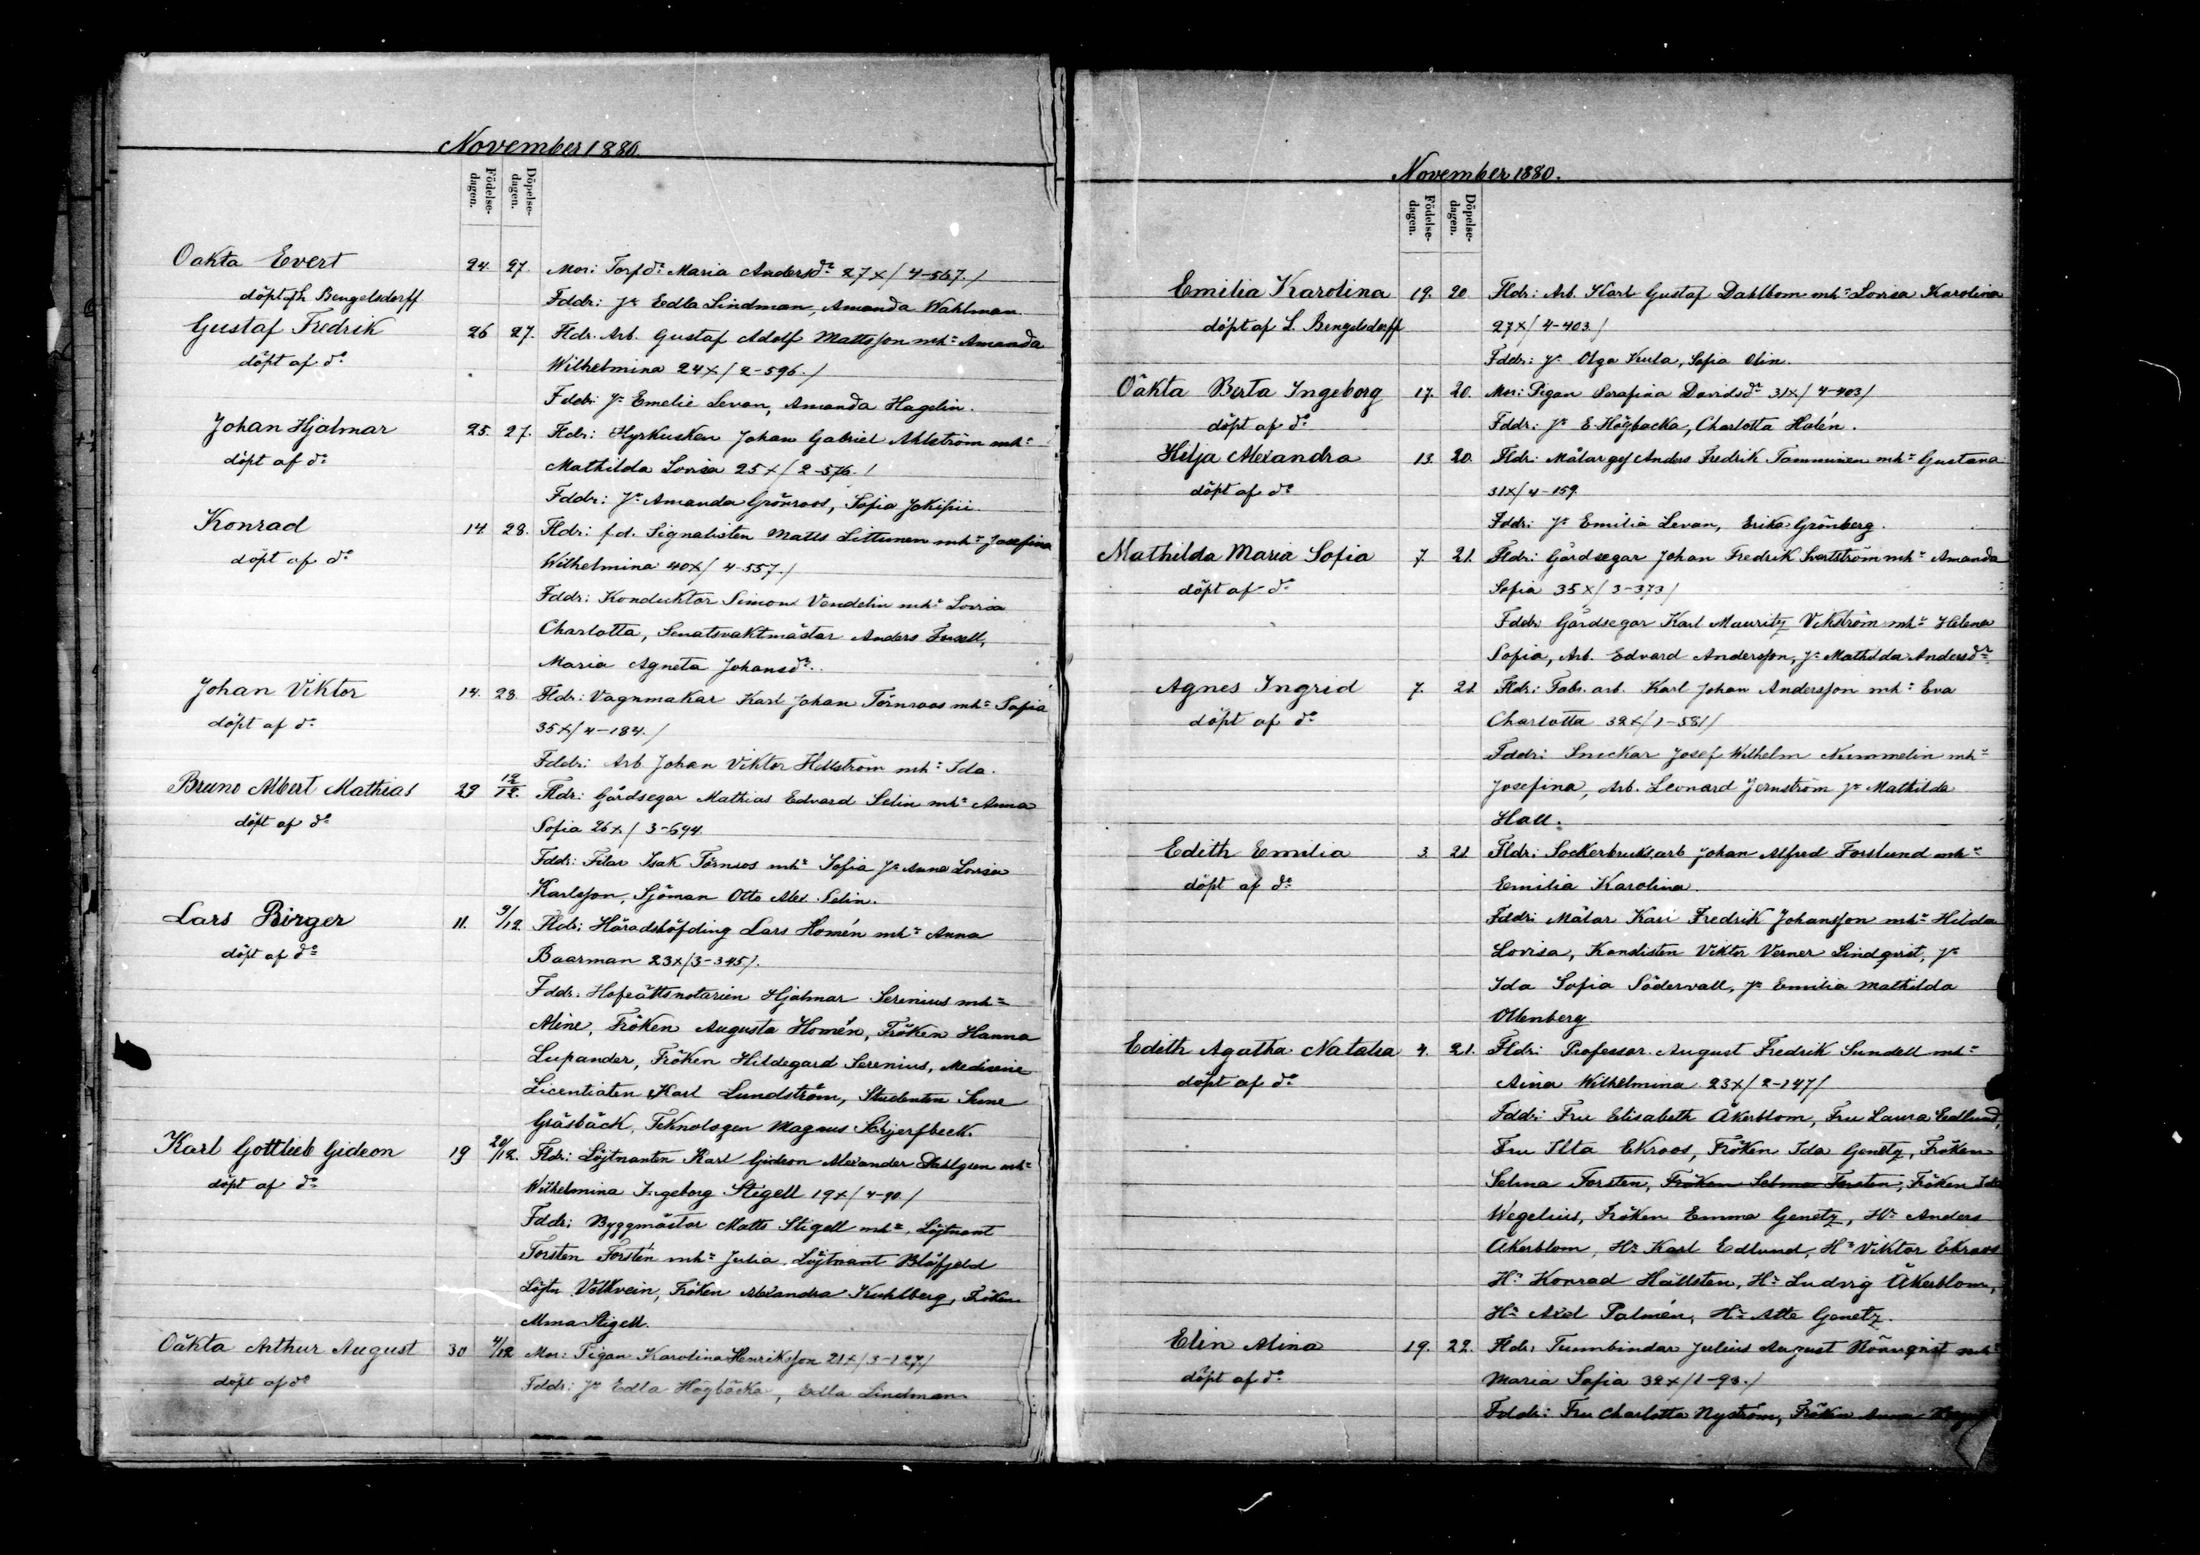 November 1880.
Födelse-dagen.
Döpelse-dagen.
Oäkta Evert 24. 27. Mor: Torpdr Maria Andersdr 27x/4-567./
döpt af L. Bengelsdorff Fddr: Jr Edla Lindman, Amanda Wahlman.
Gustaf Fredrik 26 27. Fldr. Arb. Gustaf Adolf Mattsson mhu Amanda
döpt af do Wilhelmina 24x/2-596./
Fddr: Jr Emelie Levan, Amanda Hagelin.
Johan Hjalmar 25. 27. Fldr: Hyrkusken Johan Gabriel Ahlström mhu
döpt af do Mathilda Lovisa 25x/2-576./
Fddr: Jr Amanda Grönroos, Sofia Jokipii.
Konrad 14 28. Fldr: f.d. Signalisten Matts Littunen mhu Josefina
döpt af do Wilhelmina 40x/4-557./
Fddr: Konduktor Simon Vendelin mhu Lovisa
Charlotta, Senatsvaktmästar Anders
Maria Agneta Johansdr.
Johan Viktor 14. 28. Fldr: Vagnmakar Karl Johan Törnroos mhu Sofia
döpt af do 35x/4-184./
Fddr: Arb Johan Viktor Hellström mhu Ida.
Bruno Albert Mathias 29 12/12. Fldr: Gårdsegar Mathias Edvard Selin mhu Anna
döpt af do Sofia 26x/3-694.
Fddr: Filar Isak Törnroos mhu Sofia Jr Anna Lovisa
Karlsson, Sjöman Otto Alex. Selin.
Lars Birger 11. 9/12 Fldr: Häradshöfding Lars Homén mhu Anna
döpt af do Baarman 23x/3-345/.
Fddr: Hofrättsnotarien Hjalmar Serenius mhu
Aline, Fröken Augusta Homén, Fröken Hanna
Lupander, Fröken Hildegard Serenius, Medicine
Licentiaten Karl Lundström, Studenten Sune
Gräsbäck, Teknologen Magnus Schjerfbeck.
Karl Gottlieb Gideon 19 20/12. Fldr: Löjtnanten Karl Gideon Alexander Dahlgren mhu
döpt af do Wilhelmina Ingeborg Stigell 19x/4-90./
Fddr: Byggmästar Matts Stigell mhu, Löjtnant
Torsten Forstén mhu Julia, Löjtnant Blåfjeld
Löjtn Volkvein, Fröken Alexandra Kuhlberg, Fröken
Alma Stigell.
Oäkta Arthur August 30 4/12 Mor: Pigan Karolina Henriksson 21x/3-127/
döpt af do Fddr: Jr Edla Högbäcka, Edla Lindman
November 1880.
Födelse-dagen.
Döpelse-dagen.
Emilia Karolina 19. 20 Fldr: Arb. Karl Gustaf Dahlbom mhu Lovisa Karolina
döpt af L. Bengelsdorff 27x/4-403./
Fddr: Jr Olga Kula, Sofia Olin.
Oäkta Berta Ingeborg 17. 20. Mor: Pigan Serafina Davidsdr 31x/4-403/
döpt af do Fddr: Jr E. Högbacka, Charlotta Holén.
Hilja Alexandra 13. 20. Fldr: Målarges Anders Fredrik Tamminen mhu Gustava
döpt af do 31x/4-159.
Fddr: Jr Emilia Levan, Erika Grönberg.
Mathilda Maria Sofia 7. 21. Fldr: Gårdsegar Johan Fredrik Svartström mhu Amanda
döpt af do Sofia 35x/3-373/
Fddr: Gårdsegar Karl Mauritz Vikström mhu Helena
Sofia, Arb. Edvard Andersson, Jr Mathilda Andersdr.
Agnes Ingrid 7. 21. Fldr: Fabr. arb. Karl Johan Andersson mhu Eva
döpt af do Charlotta 32x/1-581/
Fddr: Snickar Josef Wilhelm Nummelin mhu
Josefina, Arb. Leonard Jernström Jr Mathilda
Hall.
Edith Emilia 3. 21. Fldr: Sockerbruksarb Johan Alfred Forslund mhu
döpt af do Emilia Karolina.
Fddr: Målar Karl Fredrik Johansson mhu Hilda
Lovisa, Kanslisten Viktor Verner Lindqvist, Jr
Ida Sofia Södervall, Jr Emilia Mathilda
Ollenberg
Edith Agatha Natalia 4. 21. Fldr: Professor August Fredrik Sundell mhu
döpt af do Aina Wilhelmina 23x/2-147/
Fddr: Fru Elisabeth Åkerblom, Fru Laura Edlund,
Fru Ilta Ekroos, Fröken Ida Genetz, Fröken
Selma Forsten, Fröken Selma Forsten, Fröken Ida
Wegelius, Fröken Emma Genetz, Hr Anders
Åkerblom, Hr Karl Edlund, Hr Viktor Ekroos
Hr Konrad Hällsten, Hr Ludvig Åkerblom,
Hr Axel Palmén, Hr Atte Genetz.
Elin Alina 19. 22. Fldr: Tunnbindar Julius August Rönnqvist mhu
döpt af do Maria Sofia 32x/1-93./
Fddr: Fru Charlotta Nyström, Fröken Anna